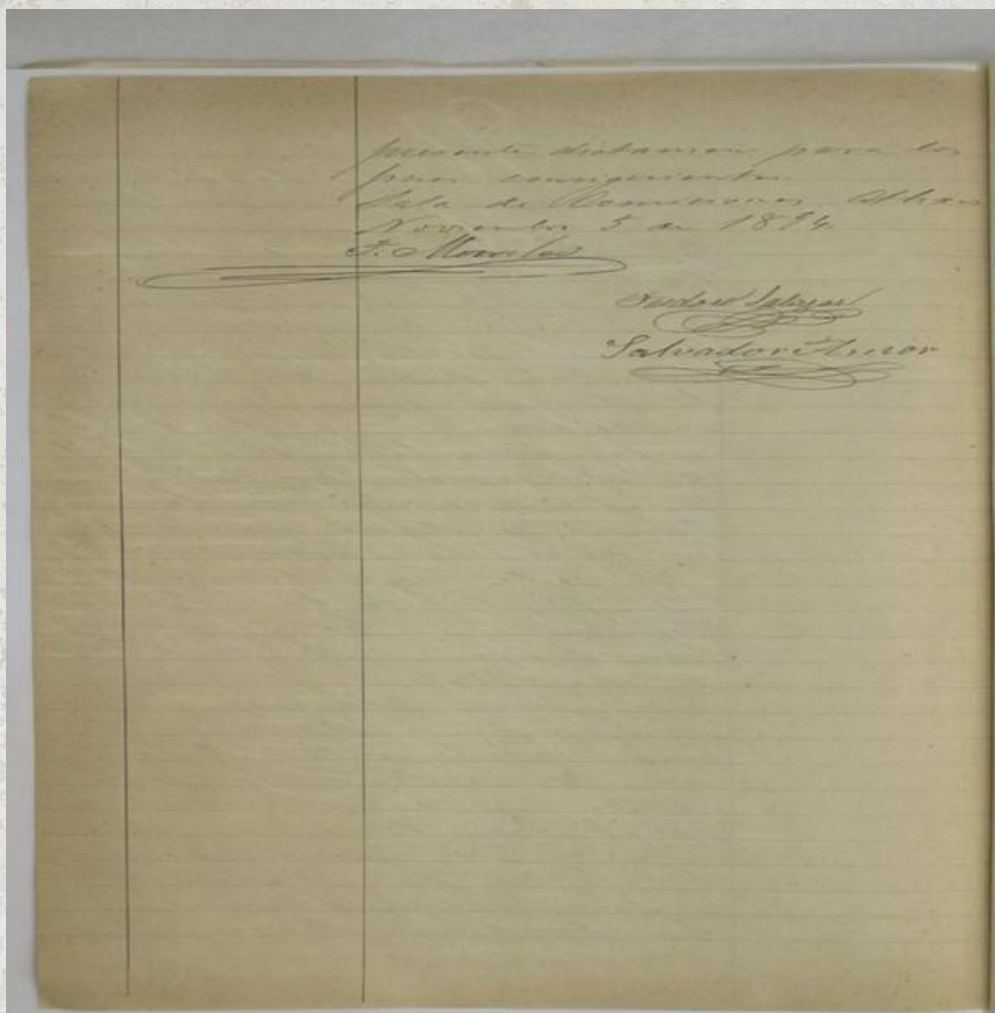 presente dictamen para los
fines consiguientes
Sala de Comisiones
Noviembre 5 de 1894.
F. Morales
Teodoro Salazar
Salvador Amor